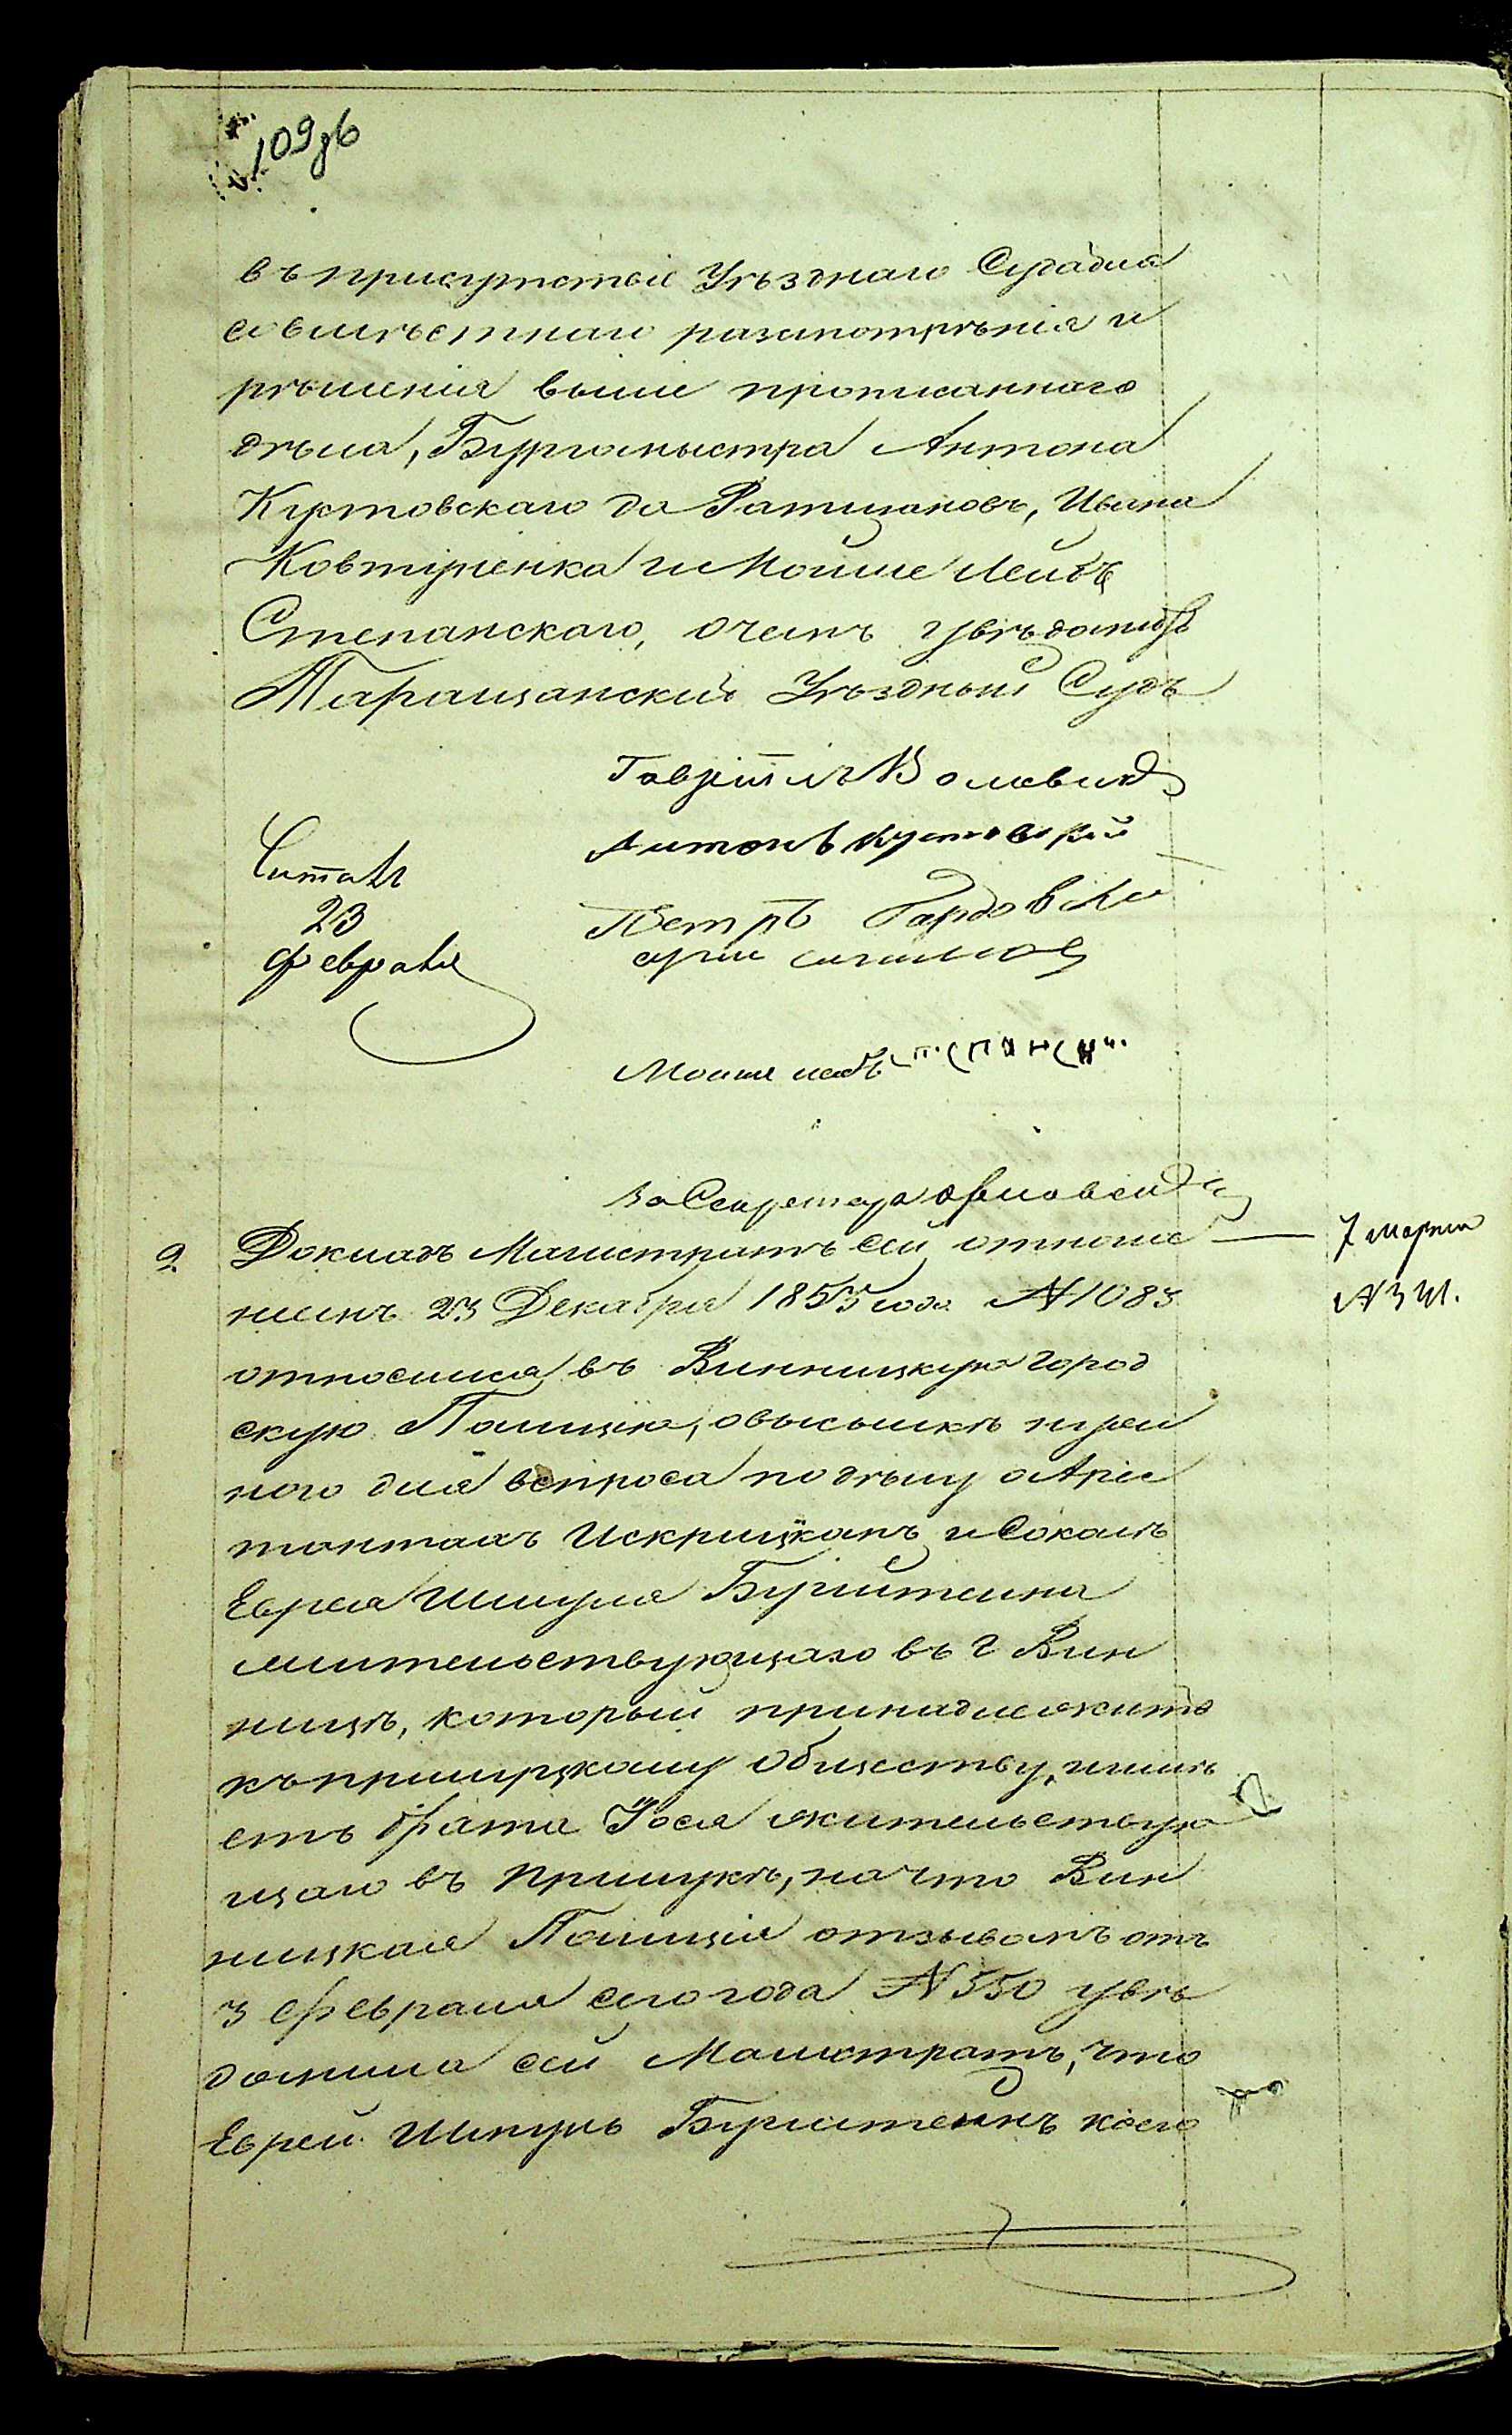 109 зв
въ присутствіе Уѣзднаго Суда для
совмѣстнаго разсмотрѣнія и
рѣшенія выше прописаннаго
дѣла, Бургомыстра Антона
Кустовскаго да Ратмановъ, Ивана
Ковтуненка и Мошке Лейбѣ
Степанскаго, о чемъ увѣдомить
Таращанскій Уѣздный Судъ
Гавріилъ
Антонъ Кустовскій
Читалъ
23
февраля
Петръ
Мошке лейбъ
За Секретаря
2. Докладъ Магистратъ сей отноше
7 марта
ніемъ 23 Декабря 1855 года № 1083
№ 341.
относился въ Винницкую Город
скую Полицію, о высылкѣ
ного для вопроса по дѣлу о Арес
тантахъ Искрицкомъ и Соколѣ
Еврея Шмуля Бурштеина
жительствующаго въ г Вин
ницѣ, который принадлежитъ
къ прилуцкому Обществу, имѣ
етъ брата Іося жительствую
щаго въ Прилукѣ, на что Вин
ницкая Полиція отзывомъ отъ
3 февраля сего года № 550 увѣ
домила сей Магистратъ, что
Еврей Шмуль Бурштеинъ коего